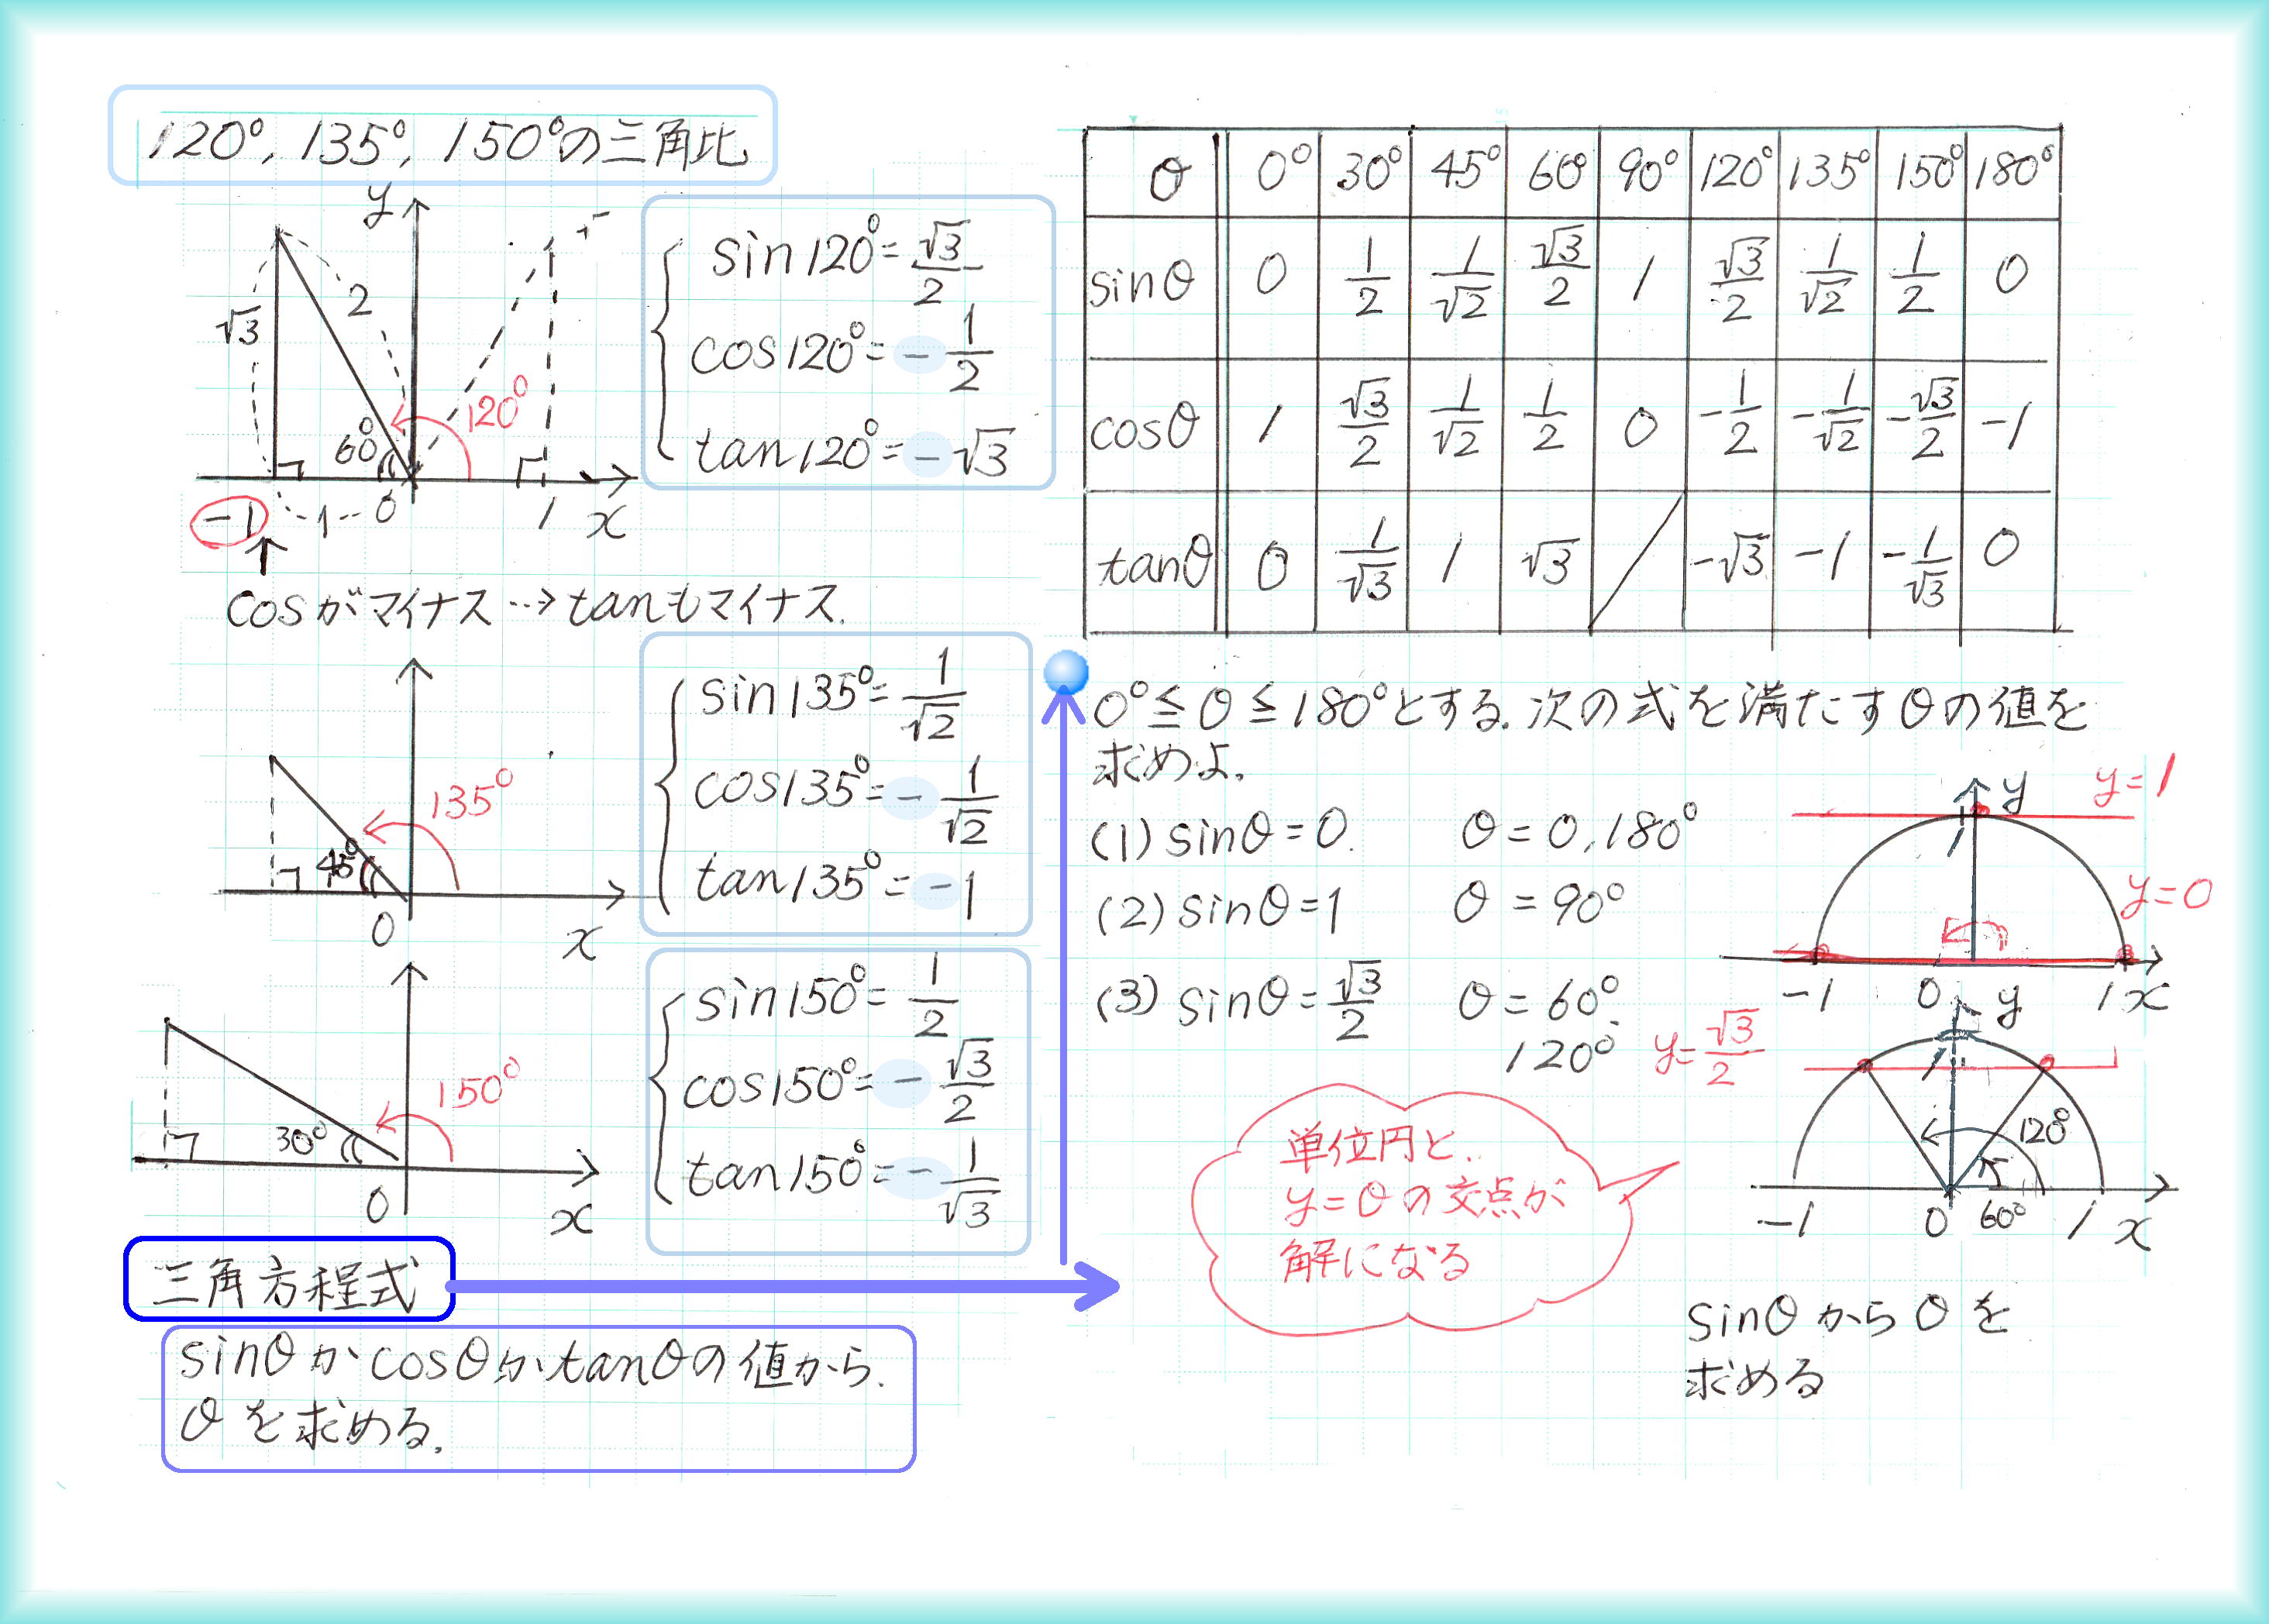 120°, 135°, 150°の三角比
y
√3
2
60°
120°
-1
1
0
1
x
cosがマイナス…→tanもマイナス.
sin120°=√3/2
cos120°=-1/2
tan120°=-√3
135°
45°
0
x
sin135°=1/√2
cos135°=-1/√2
tan135°=-1
150°
30°
0
x
sin150°=1/2
cos150°=-√3/2
tan150°=-1/√3
三角方程式
sinθかcosθかtanθの値から.
θを求める.
θ 0° 30° 45° 60° 90° 120° 135° 150° 180°
sinθ 0 1/2 1/√2 √3/2 1 √3/2 1/√2 1/2 0
cosθ 1 √3/2 1/√2 1/2 0 -1/2 -1/√2 -√3/2 -1
tanθ 0 1/√3 1 √3 -√3 -1 -1/√3 0
0°≦θ≦180°とする.次の式を満たすθの値を
求めよ.
(1) sinθ=0. θ=0,180°
(2) sinθ=1 θ=90°
(3) sinθ=√3/2 θ=60°
120°
y
y=1
1
y=0
-1
0
1
x
y
y=√3/2
1
120°
-1
0
60°
1
x
単位円と.
y=θの交点が
解になる
sinθからθを
求める